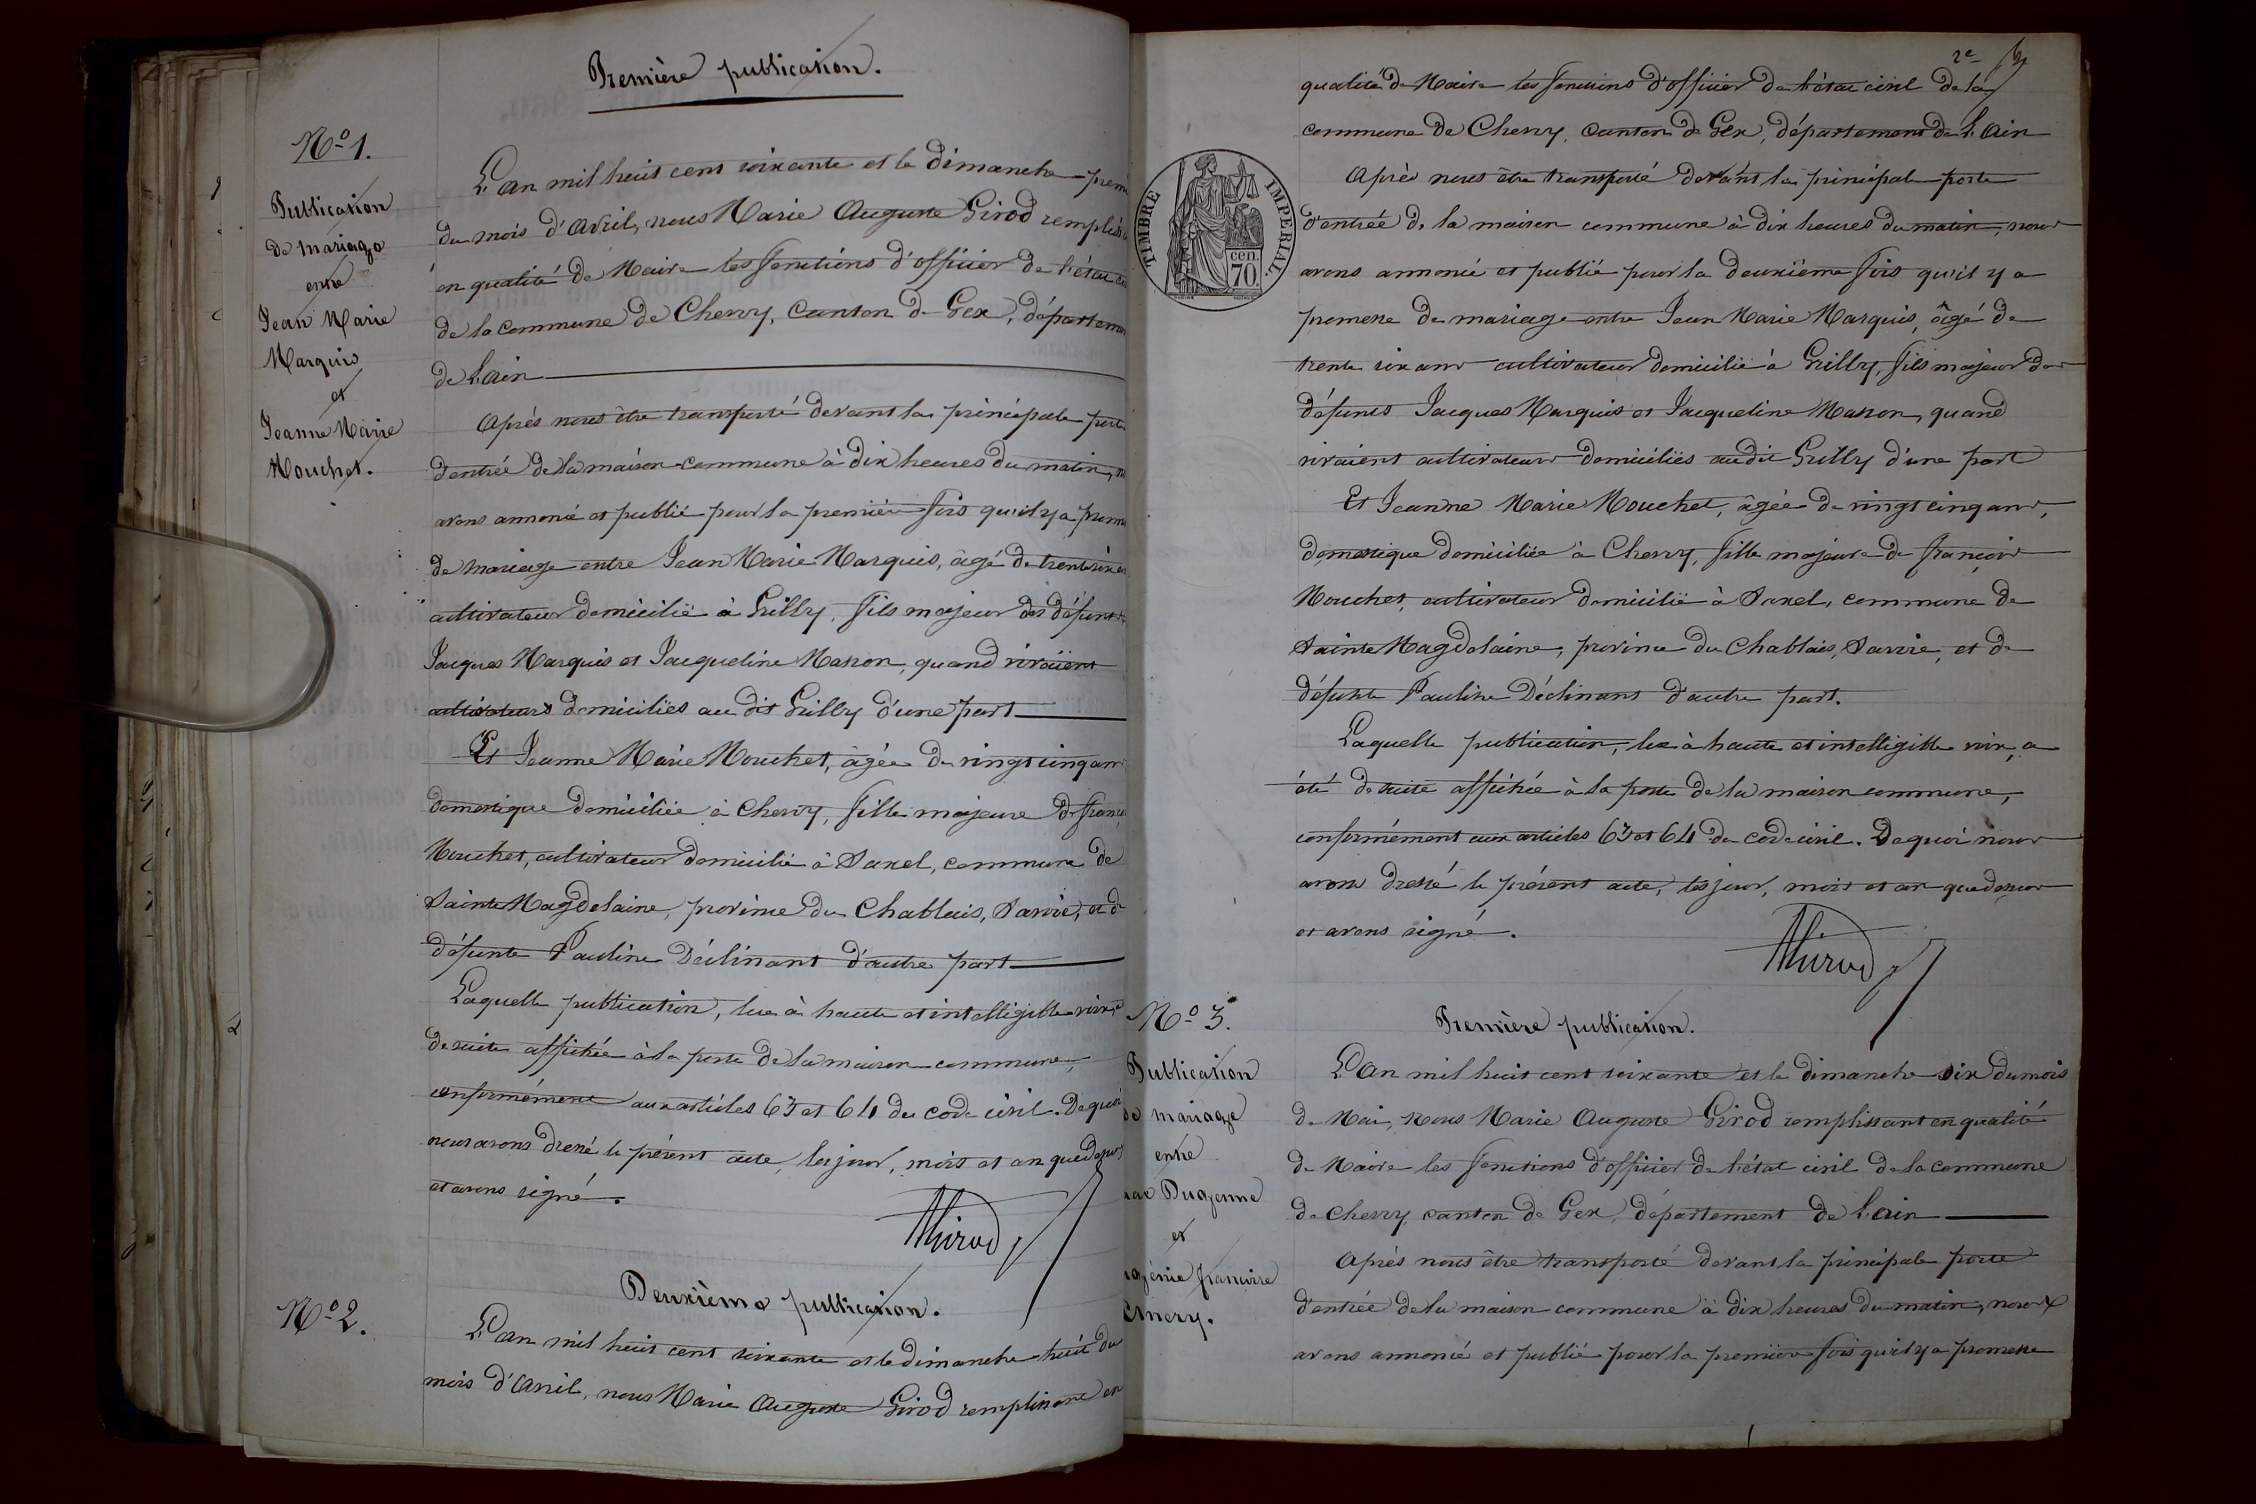 Première publication.
No 1.
Publication
de mariage
entre
Jean Marie
Marquis
et
Jeanne Marie
Mouchet.
L'an mil huit cent soixante et le dimanche premi
du mois d'Avril, nous Marie Auguste Girod remplis
en qualité de Maire les fonctions d'officier de l'état ci
de la commune de Chevry, Canton de Gex, départemen
de l'Ain
Après nous être transporté devant la principale porte
d'entrée de la maison commune à dix heures du matin, n
avons annoncé et publié pour la première fois qu'il y a prome
de mariage entre Jean Marie Marquis, âgé de trente six an
cultivateur domicilié à Grilly, fils majeur des défunts
Jacques Marquis et Jacqueline Masson, quand vivaient
cultivateurs domiciliés au dit Grilly d'une part
Et Jeanne Marie Mouchet, âgée de vingt cinq ans
domestique domiciliée à Chevry, fille majeure de Franço
Mouchet, cultivateur domicilié à Saxel, commune de
Sainte Magdelaine, province du Chablais, Savoie, et d
défunte Pauline Déclinant d'autre part
Laquelle publication, lue à haute et intelligible voix, a
de suite affichée à la porte de la maison commune,
conformément aux articles 63 et 64 du code civil. De quoi
nous avons dressé le présent acte, les jour, mois et an que dessus
et avons signé.
AGirod
Deuxième publication.
No 2.
L'an mil huit cent soixante et le dimanche huit du
mois d'Avril, nous Marie Auguste Girod remplissant en
2e
qualité de Maire les fonctions d'officier de l'état civil de la
commune de Chevry, canton de Gex, département de l'Ain
TIMBRE IMPERIAL
70 cen.
Après nous être transporté devant la principale porte
d'entrée de la maison commune à dix heures du matin, nous
avons annoncé et publié pour la deuxième fois qu'il y a
promesse de mariage entre Jean Marie Marquis, âgé de
trente six ans cultivateur domicilié à Grilly, fils majeur des
défunts Jacques Marquis et Jacqueline Masson, quand
vivaient cultivateurs domiciliés audit Grilly d'une part
Et Jeanne Marie Mouchet, âgée de vingt cinq ans,
domestique domiciliée à Chevry, fille majeure de François
Mouchet, cultivateur domicilié à Saxel, commune de
Sainte Magdelaine, province du Chablais, Savoie, et de
défunte Pauline Déclinant d'autre part.
Laquelle publication, lue à haute et intelligible voix, a
été de suite affichée à la porte de la maison commune,
conformément aux articles 63 et 64 du code civil. De quoi nous
avons dressé le présent acte, les jour, mois et an que dessus
et avons signé.
AGirod
No 3.
Publication
de mariage
entre
Dugenne
et
génie Françoise
Emery.
Première publication.
L'an mil huit cent soixante et le dimanche six du mois
de Mai, nous Marie Auguste Girod remplissant en qualité
de Maire les fonctions d'officier de l'état civil de la commune
de Chevry canton de Gex, département de l'Ain
Après nous être transporté devant la principale porte
d'entrée de la maison commune à dix heures du matin, nous
avons annoncé et publié pour la première fois qu'il y a promesse